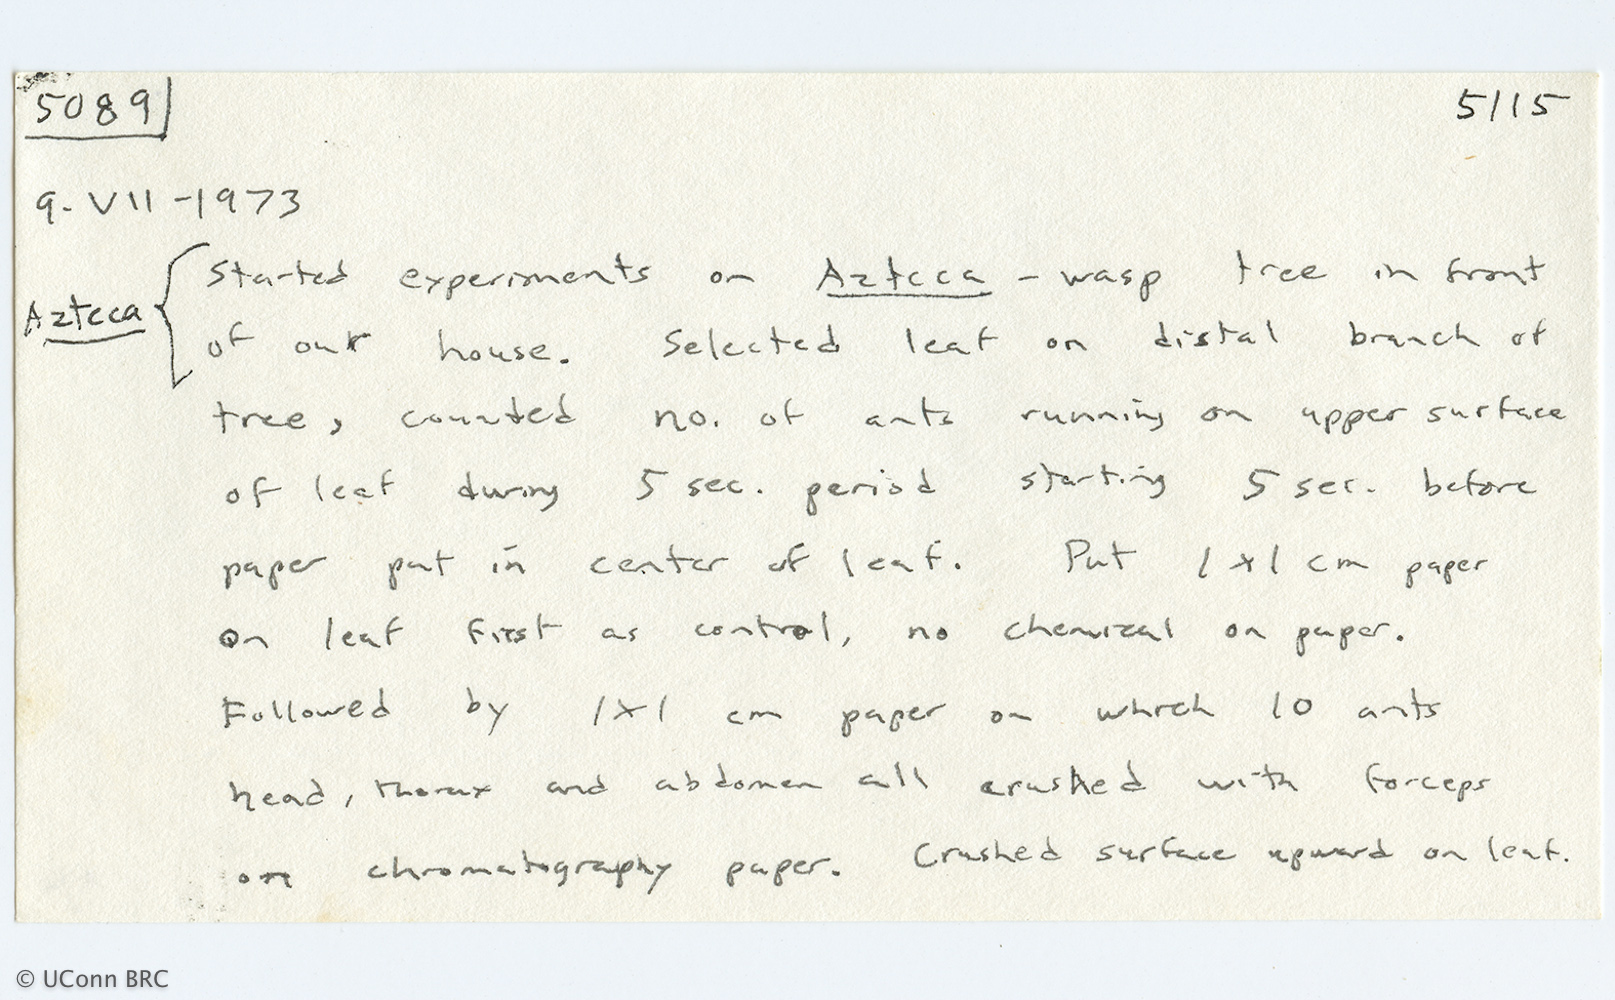 5089
5/15
9-VII-1973
Azteca
Started experiments on Azteca - wasp tree in front
of our house. Selected leaf on distal branch of
tree, counted no. of ants running on upper surface
of leaf during 5 sec. period starting 5 sec. before
paper put in center of leaf. Put 1x1 cm paper
on leaf first as control, no chemical on paper.
Followed by 1x1 cm paper on which 10 ants
head, thorax and abdomen all crushed with forceps
on chromatography paper. Crushed surface upward on leaf.
© UConn BRC